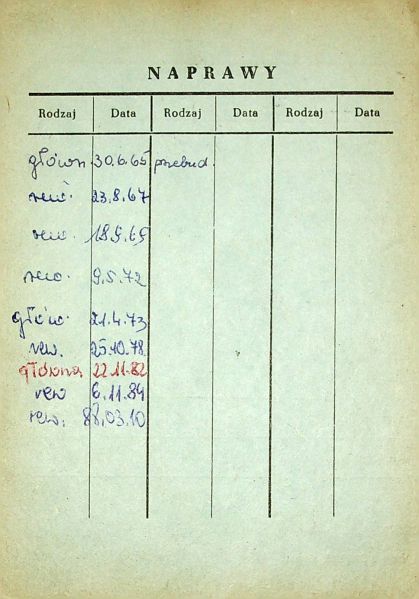 NAPRAWY
Rodzaj Data Rodzaj Data Rodzaj Data
główn 30.6.65 przebud.
rew. 23.8.67
rew. 18.9.69
rew. 9.5.72
główn. 21.4.73
rew. 25.10.78
główna 22.11.82
rew 6.11.84
rew. 88.03.10